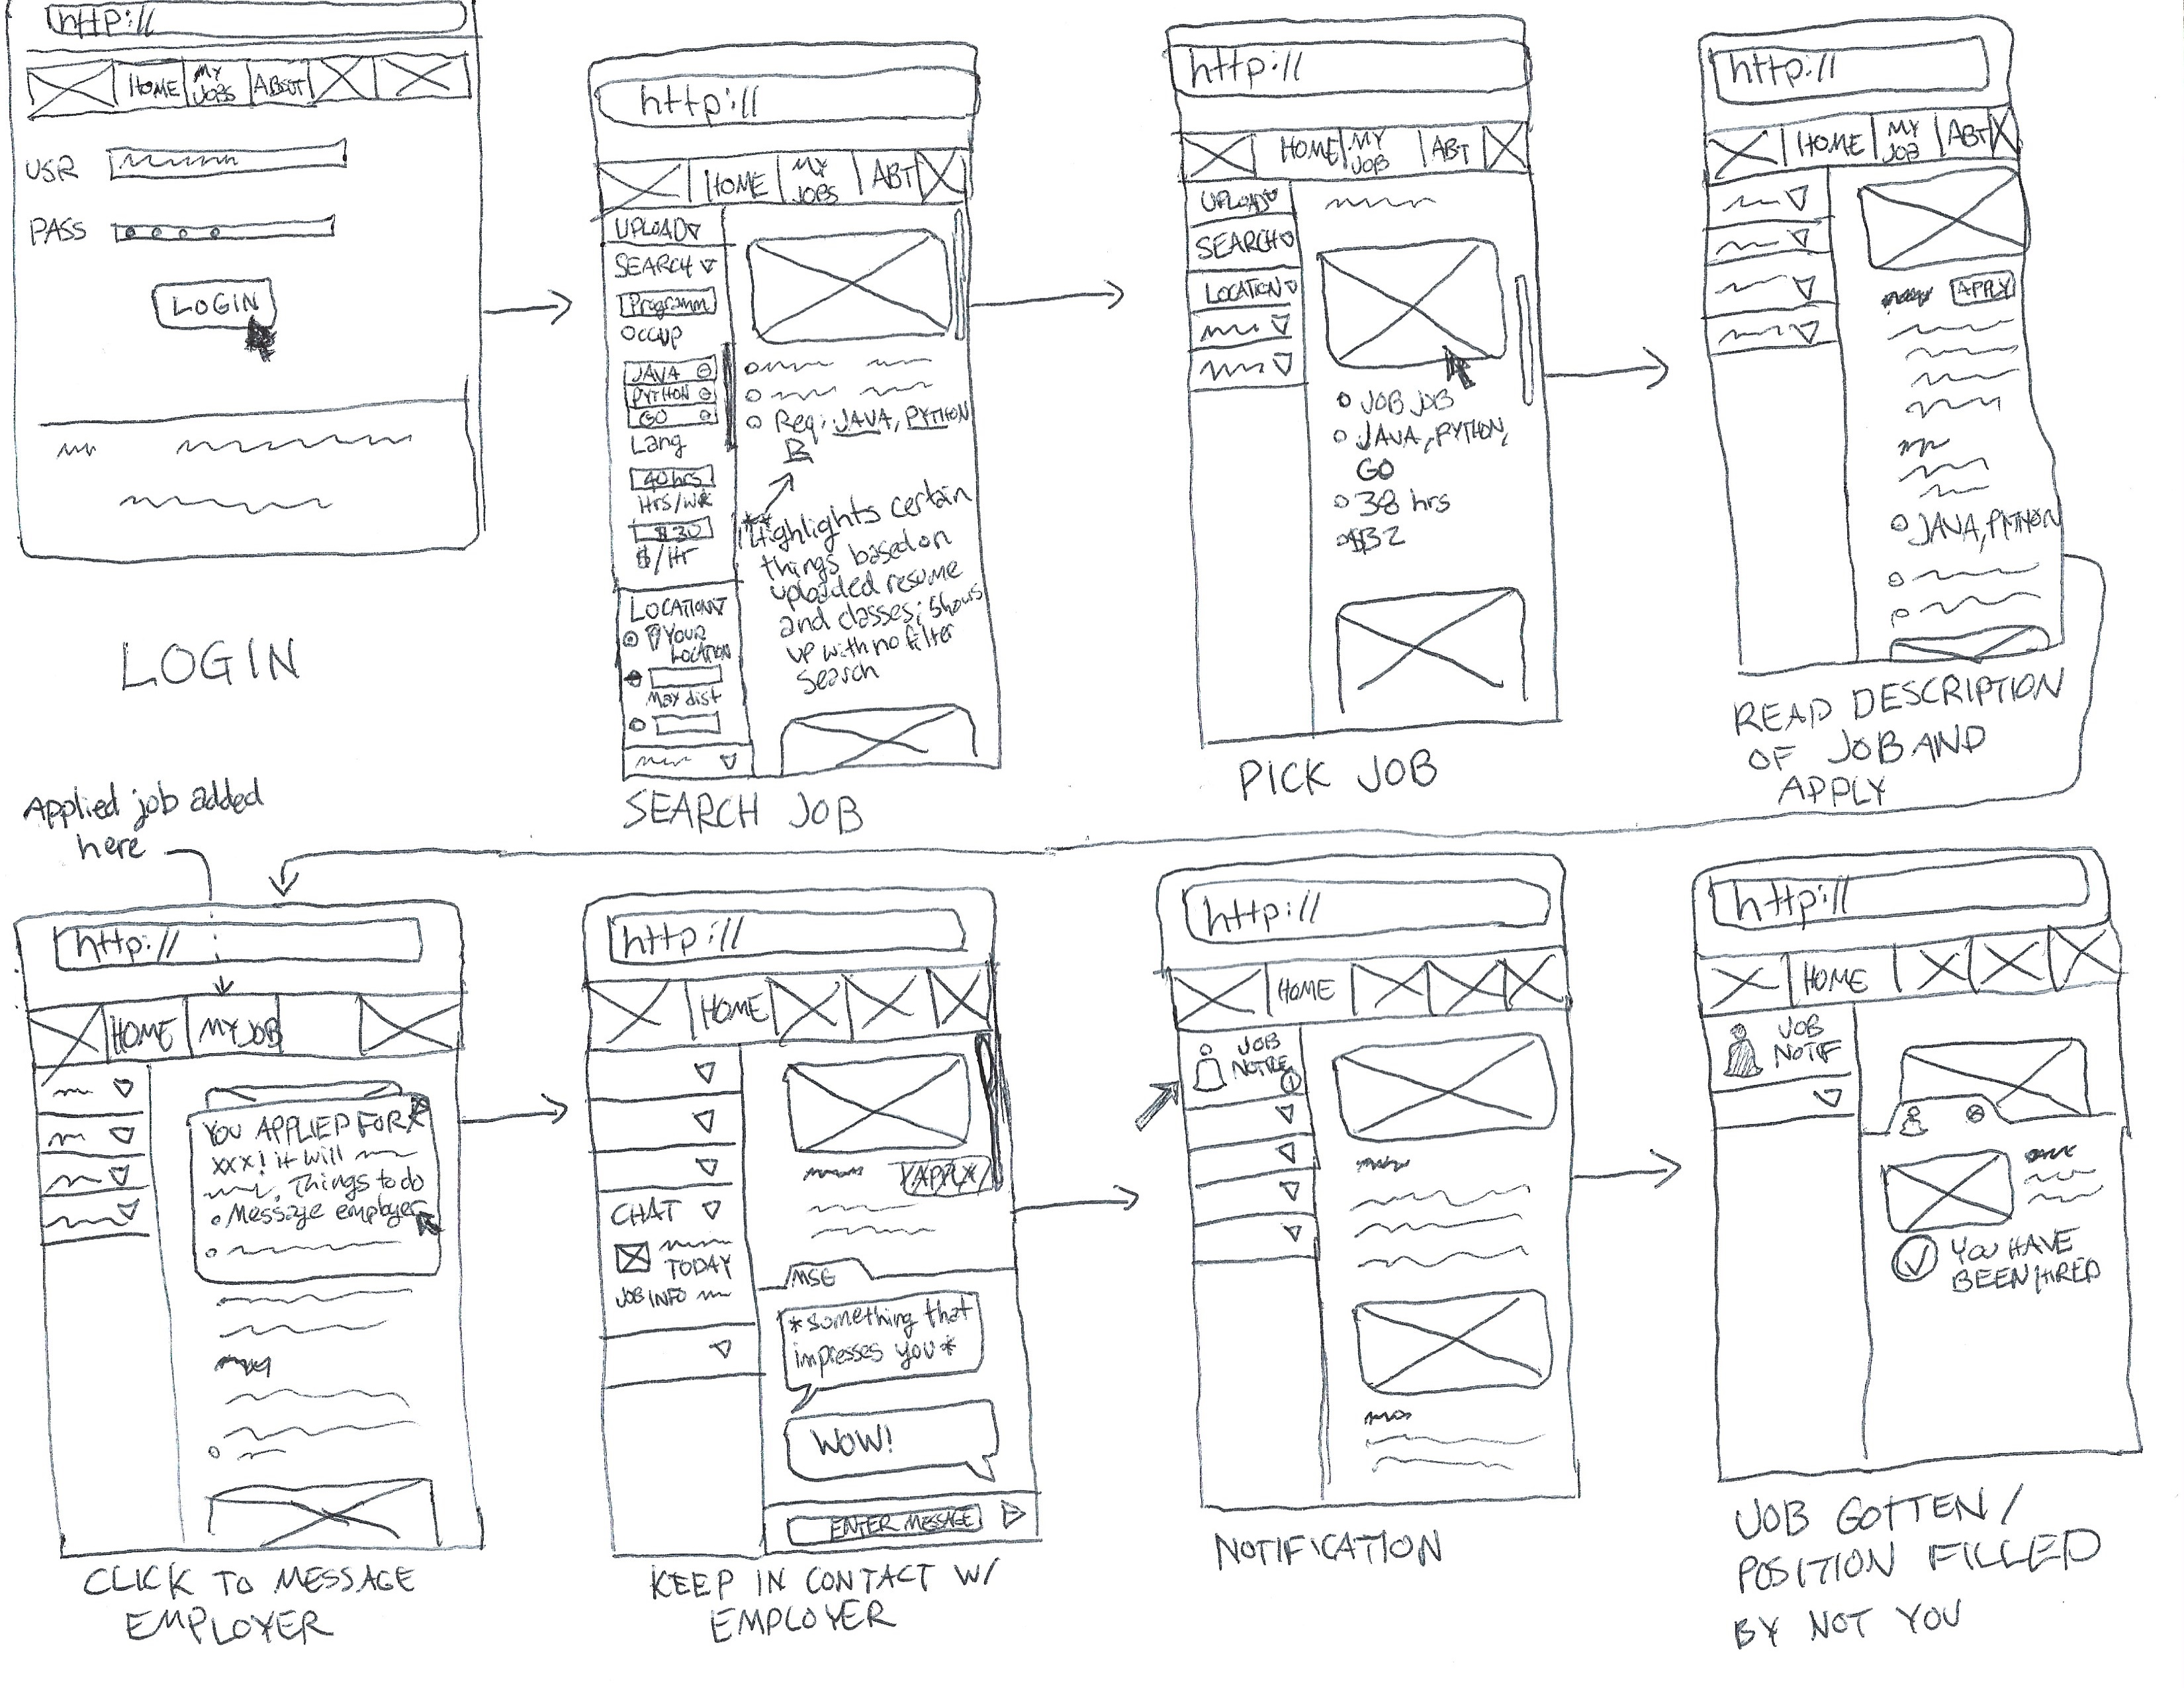 http://
HOME
MY
JOBS
ABOUT
USR
PASS
LOGIN
LOGIN
http://
HOME
MY
JOBS
ABT
UPLOAD
SEARCH
Programm
Occup
JAVA
PYTHON
GO
Lang
40 hrs
Hrs/wk
$30
$/Hr
LOCATION
YOUR
LOCATION
Max dist
Req: JAVA, PYTHON
**Highlights certain
things based on
uploaded resume
and classes; shows
up with no filter
search
SEARCH JOB
http://
HOME
MY
JOB
ABT
UPLOAD
SEARCH
LOCATION
JOB JOB
JAVA, PYTHON,
GO
38 hrs
$32
PICK JOB
http://
HOME
MY
JOB
ABT
APPLY
JAVA, PYTHON
READ DESCRIPTION
OF JOB AND
APPLY
Applied job added
here
http://
HOME
MY JOB
YOU APPLIED FOR
xxx! it will
Things to do
Message employer
CLICK TO MESSAGE
EMPLOYER
http://
HOME
CHAT
TODAY
JOB INFO
APPLY
MSG
*something that
impresses you*
WOW!
ENTER MESSAGE
KEEP IN CONTACT W/
EMPLOYER
http://
HOME
JOB
1
NOTIFICATION
http://
HOME
JOB
NOTIF
YOU HAVE
BEEN HIRED
JOB GOTTEN/
POSITION FILLED
BY NOT YOU